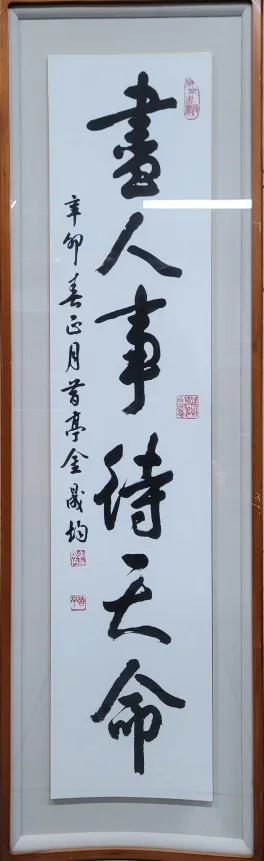 盡人事待天命
辛卯春正月 亭金晟均